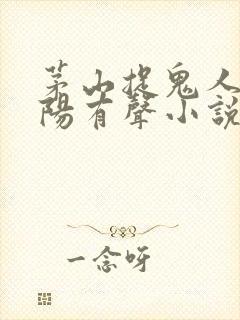 茅山捉鬼人
陽有聲小說
一念呀